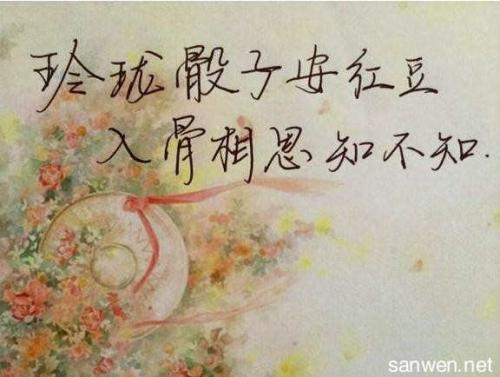 玲珑骰子安红豆
入骨相思知不知.
sanwen.net